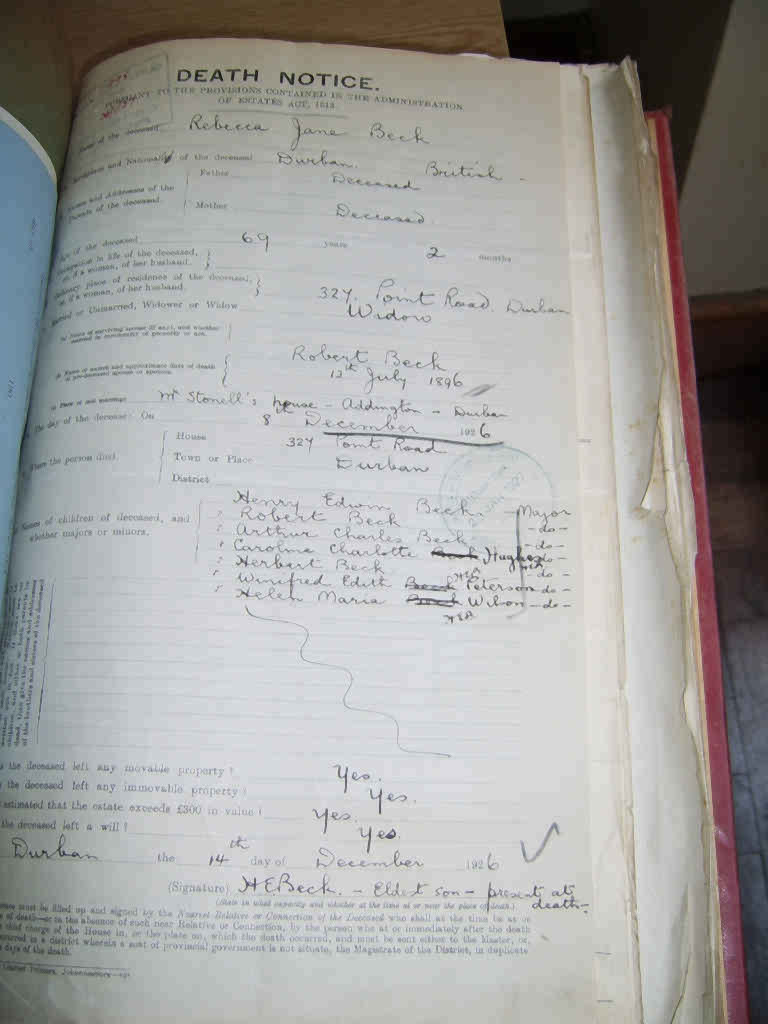 DEATH NOTICE.
PURSUANT TO THE PROVISIONS CONTAINED IN THE ADMINISTRATION
OF ESTATES ACT, 1913.
Name of the deceased Rebecca Jane Beck
Birthplace and Nationality of the deceased Durban. British -
Names and Addresses of the
Parents of the deceased.
Father Deceased
Mother Deceased.
Age of the deceased 69 years 2 months
Occupation in life of the deceased,
or, if a woman, of her husband.
Ordinary place of residence of the deceased,
or, if a woman, of her husband.
327. Point Road. Durban
Married or Unmarried, Widower or Widow Widow
(a) Name of surviving spouse (if any), and whether
married in community of property or not.
(b) Name or names and approximate date of death
of pre-deceased spouse or spouses.
Robert Beck
12th July 1896
(c) Place of last marriage Mr Stonell's house - Addington - Durban
The day of the decease: On 8th December 1926
Where the person died.
House 327 Point Road
Town or Place Durban
District
Names of children of deceased, and
whether majors or minors.
Henry Edwin Beck - Major
" Robert Beck -do-
" Arthur Charles Beck -do-
" Caroline Charlotte Beck Hughes -do-
" Herbert Beck HEB -do-
" Winifred Edith Beck Peterson -do-
" Helen Maria Beck Wilson -do-
HEB
of the brothers and sisters of the deceased
s the deceased left any movable property? Yes.
the deceased left any immovable property? Yes.
estimated that the estate exceeds £300 in value? Yes.
the deceased left a will? Yes.
Durban the 14th day of December 1926
(Signature) H E Beck. - Eldest son - present at
death -
(State in what capacity and whether at the time at or near the place of death.)
must be filled up and signed by the Nearest Relative or Connection of the Deceased who shall at the time be at or
of death—or in the absence of such near Relative or Connection, by the person who at or immediately after the death
chief charge of the House in, or the place on, which the death occurred, and must be sent either to the Master, or,
curred in a district wherein a seat of provincial government is not situate, the Magistrate of the District, in duplicate
days of the death.
Limited Printers, Johannesburg